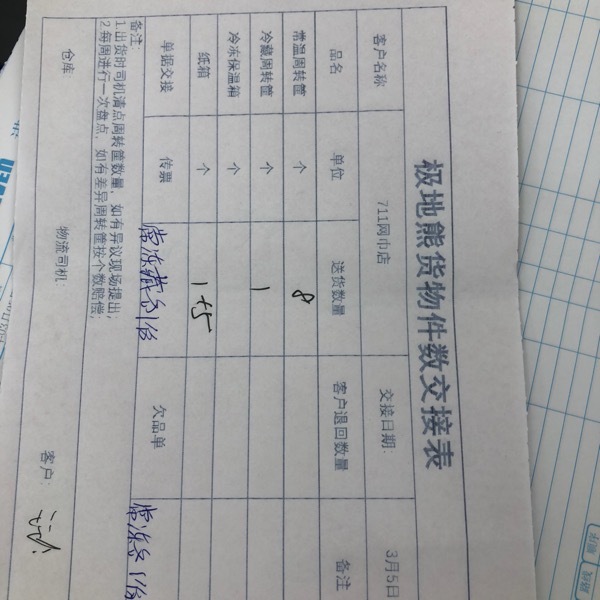 极地熊货物件数交接表
客户名称 711网巾店 交接日期: 3月5日
品名 单位 送货数量 客户退回数量 备注
常温周转筐 个 8
冷藏周转筐 个 1
冷冻保温箱 个
纸箱 个 1+5
单据交接 传票 常冻藏各1份 欠品单 常冻各1份
备注:
1.出货时司机清点周转筐数量，如有异议现场提出;
2.每周进行一次盘点，如有差异周转筐按个数赔偿;
仓库: 物流司机: 客户: